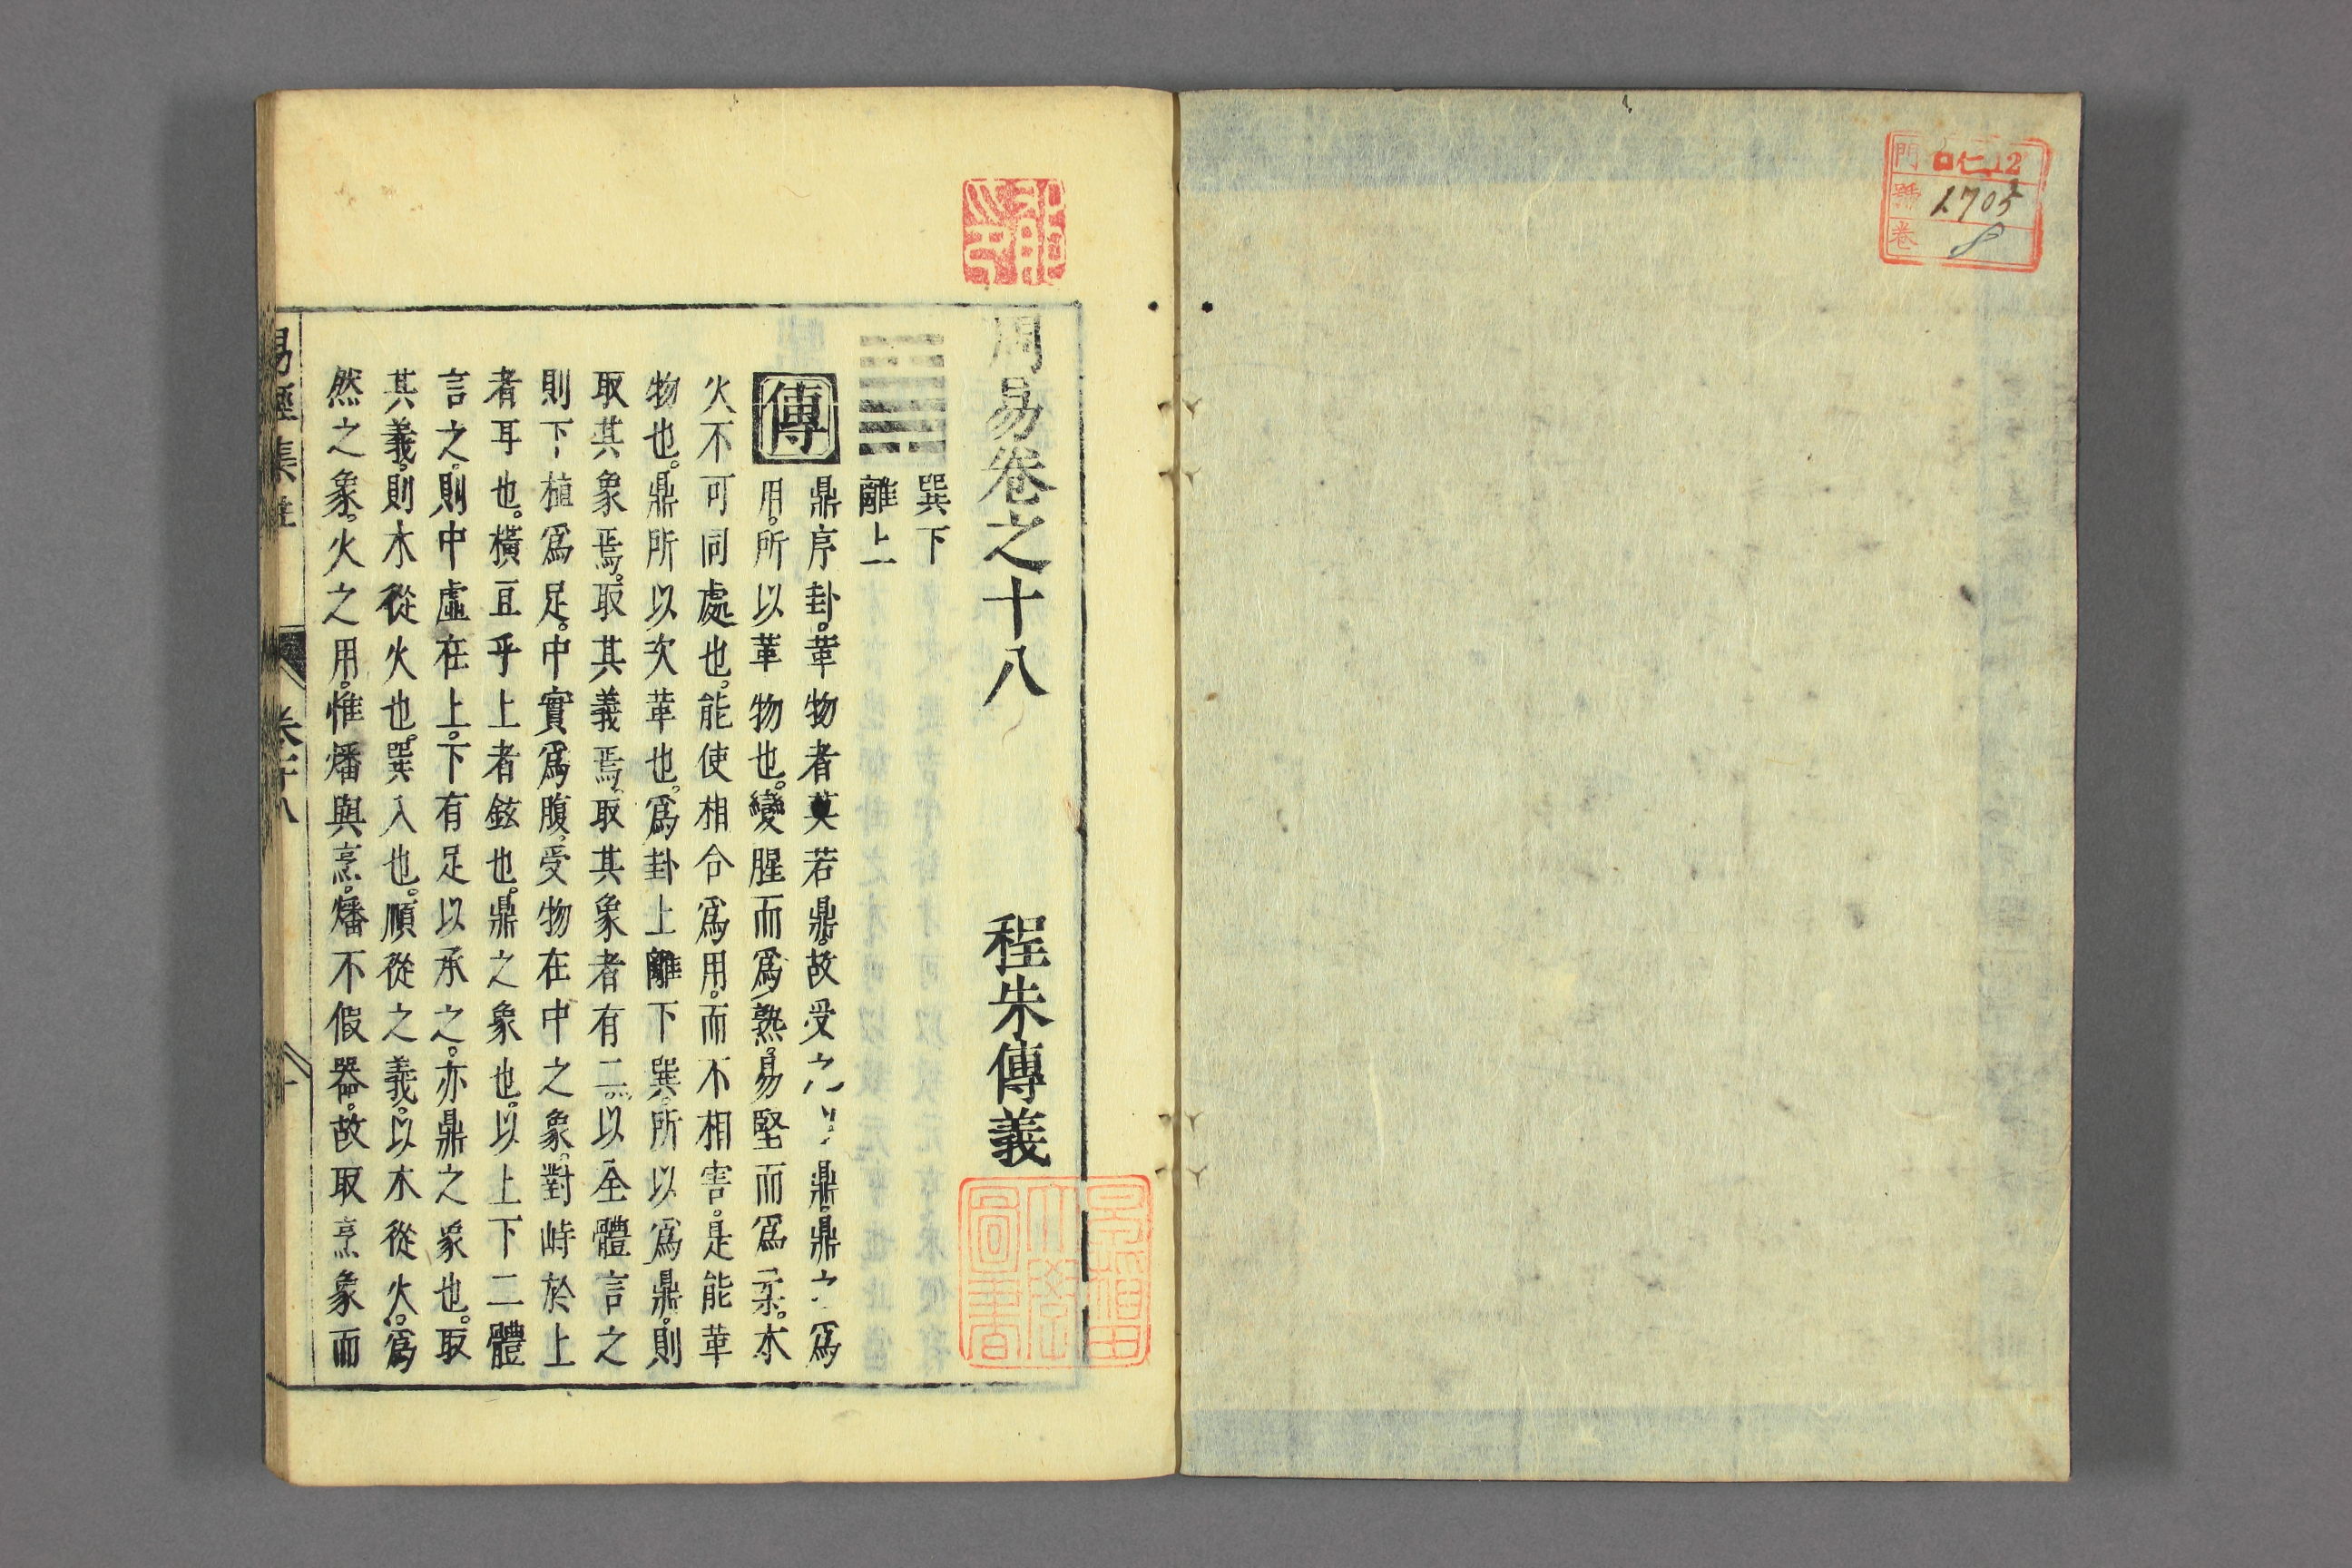 門 ロ仁12
號 1705
卷 8
周易卷之十八 程朱傳義
巽下
離上
傳 鼎序卦。革物者莫若鼎。故受之以鼎。鼎之爲
用。所以革物也。變腥而爲熟。易堅而爲柔。水
火不可同處也。能使相合爲用。而不相害。是能革
物也。鼎所以次革也。爲卦上離下巽。所以爲鼎。則
取其象焉。取其義焉。取其象者有二。以全體言之
則下植爲足。中實爲腹。受物在中之象。對峙於上
者耳也。橫亘乎上者鉉也。鼎之象也。以上下二體
言之。則中虛在上。下有足以承之。亦鼎之象也。取
其義。則木從火也。巽入也。順從之義。以木從火。爲
然之象。火之用。惟燔與烹。燔不假器。故取烹象而
易經集註 卷十八 一
早稻田
大學
圖書